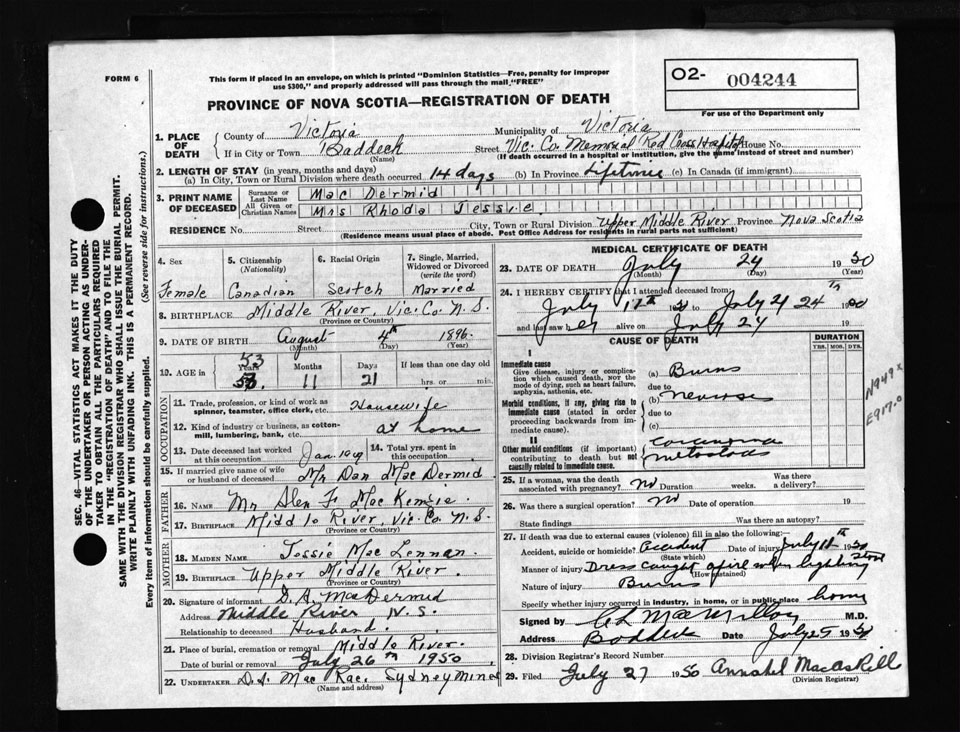 FORM 6
This form if placed in an envelope, on which is printed "Dominion Statistics—Free, penalty for improper
use $300," and properly addressed will pass through the mail "FREE"
PROVINCE OF NOVA SCOTIA—REGISTRATION OF DEATH
O2- 004244
For use of the Department only
SEC. 46—VITAL STATISTICS ACT MAKES IT THE DUTY
OF THE UNDERTAKER OR PERSON ACTING AS UNDER-
TAKER TO OBTAIN ALL THE PARTICULARS REQUIRED
IN THE "REGISTRATION OF DEATH" AND TO FILE THE
SAME WITH THE DIVISION REGISTRAR WHO SHALL ISSUE THE BURIAL PERMIT.
WRITE PLAINLY WITH UNFADING INK. THIS IS A PERMANENT RECORD.
Every item of information should be carefully supplied. (See reverse side for instructions.)
1. PLACE OF DEATH
County of Victoria Municipality of Victoria
If in City or Town Baddeck (Name) Street Vic. Co. Memorial Red Cross Hospital House No.
(If death occurred in a hospital or institution, give the name instead of street and number)
2. LENGTH OF STAY (in years, months and days)
(a) In City, Town or Rural Division where death occurred 14 days (b) In Province Lifetime (c) In Canada (if immigrant)
3. PRINT NAME OF DECEASED
Surname or Last Name Mac Dermid
All Given or Christian Names Mrs Rhoda Jessie
RESIDENCE No. Street City, Town or Rural Division Upper Middle River Province Nova Scotia
(Residence means usual place of abode. Post Office Address for residents in rural parts not sufficient)
4. Sex Female
5. Citizenship (Nationality) Canadian
6. Racial Origin Scotch
7. Single, Married, Widowed or Divorced (write the word) Married
8. BIRTHPLACE Middle River, Vic. Co. N.S.
(Province or Country)
9. DATE OF BIRTH August 4th 1896
(Month) (Day) (Year)
10. AGE in 53 Years 11 Months 21 Days If less than one day old hrs. or min.
OCCUPATION
11. Trade, profession, or kind of work as spinner, teamster, office clerk, etc. Housewife
12. Kind of industry or business, as cotton-mill, lumbering, bank, etc. at home
13. Date deceased last worked at this occupation Jan.
14. Total yrs. spent in this occupation
15. If married give name of wife or husband of deceased Mr Dan MacDermid
FATHER
16. NAME Mr F. MacKenzie
17. BIRTHPLACE Middle River, Vic. Co. N.S.
(Province or Country)
MOTHER
18. MAIDEN NAME Jessie Mac Lennan.
19. BIRTHPLACE Upper Middle River.
(Province or Country)
20. Signature of informant D.A. MacDermid
Address Middle River N.S.
Relationship to deceased Husband.
21. Place of burial, cremation or removal Middle River.
Date of burial or removal July 26th 1950
22. UNDERTAKER Mac Rae. Sydney Mines
(Name and address)
MEDICAL CERTIFICATE OF DEATH
23. DATE OF DEATH July 24 1950
(Month) (Day) (Year)
24. I HEREBY CERTIFY that I attended deceased from
July 11th to July 24th 1950
and last saw her alive on July 24 19
CAUSE OF DEATH
DURATION
YRS. MOS. DYS.
I
Immediate cause
Give disease, injury or complication which caused death, not the mode of dying, such as heart failure, asphyxia, asthenia, etc.
(a) Burns
due to
Morbid conditions, if any, giving rise to immediate cause (stated in order proceeding backwards from immediate cause).
(b)
due to
(c)
II
Other morbid conditions (if important) contributing to death but not causally related to immediate cause.
carcinoma
metastasis
N949x
E917.0
25. If a woman, was the death associated with pregnancy? No Duration weeks. Was there a delivery?
26. Was there a surgical operation? No Date of operation 19
State findings Was there an autopsy?
27. If death was due to external causes (violence) fill in also the following:—
Accident, suicide or homicide? Accident Date of injury July 11th 1950
(State which)
Manner of injury Dress caught afire when lighting stove
(How sustained)
Nature of injury Burns
Specify whether injury occurred in industry, in home, or in public place home
Signed by MacMillan M.D.
Address Baddeck Date July 25 1950
28. Division Registrar's Record Number
29. Filed July 27 1950 Annabel MacAskill
(Division Registrar)